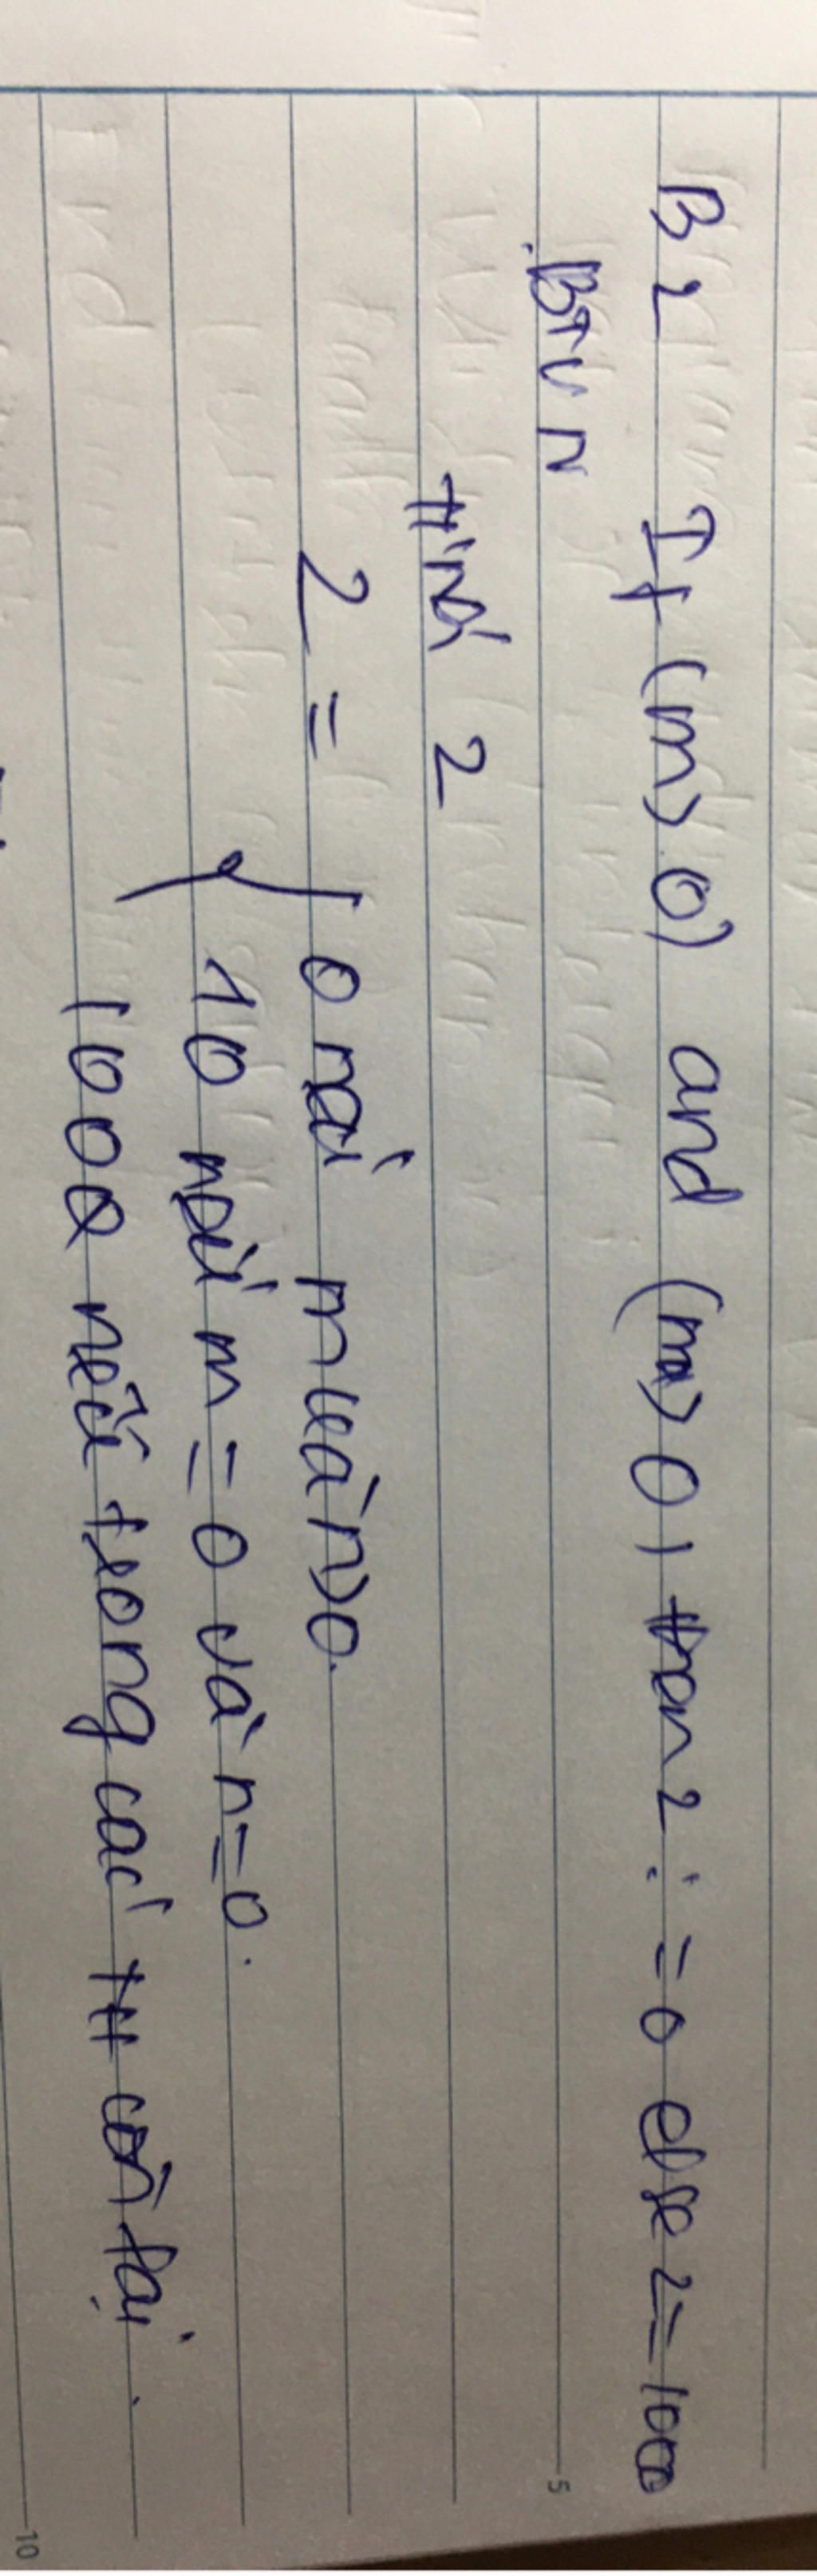 B2 If (m>0) and (m>0) then 2 := 0 else 2=1000
BTVN
Tính 2
2 = { 0 nếu m và n>0.
10 nếu m=0 và n=0.
1000 nếu trong các TH còn lại.
5
10